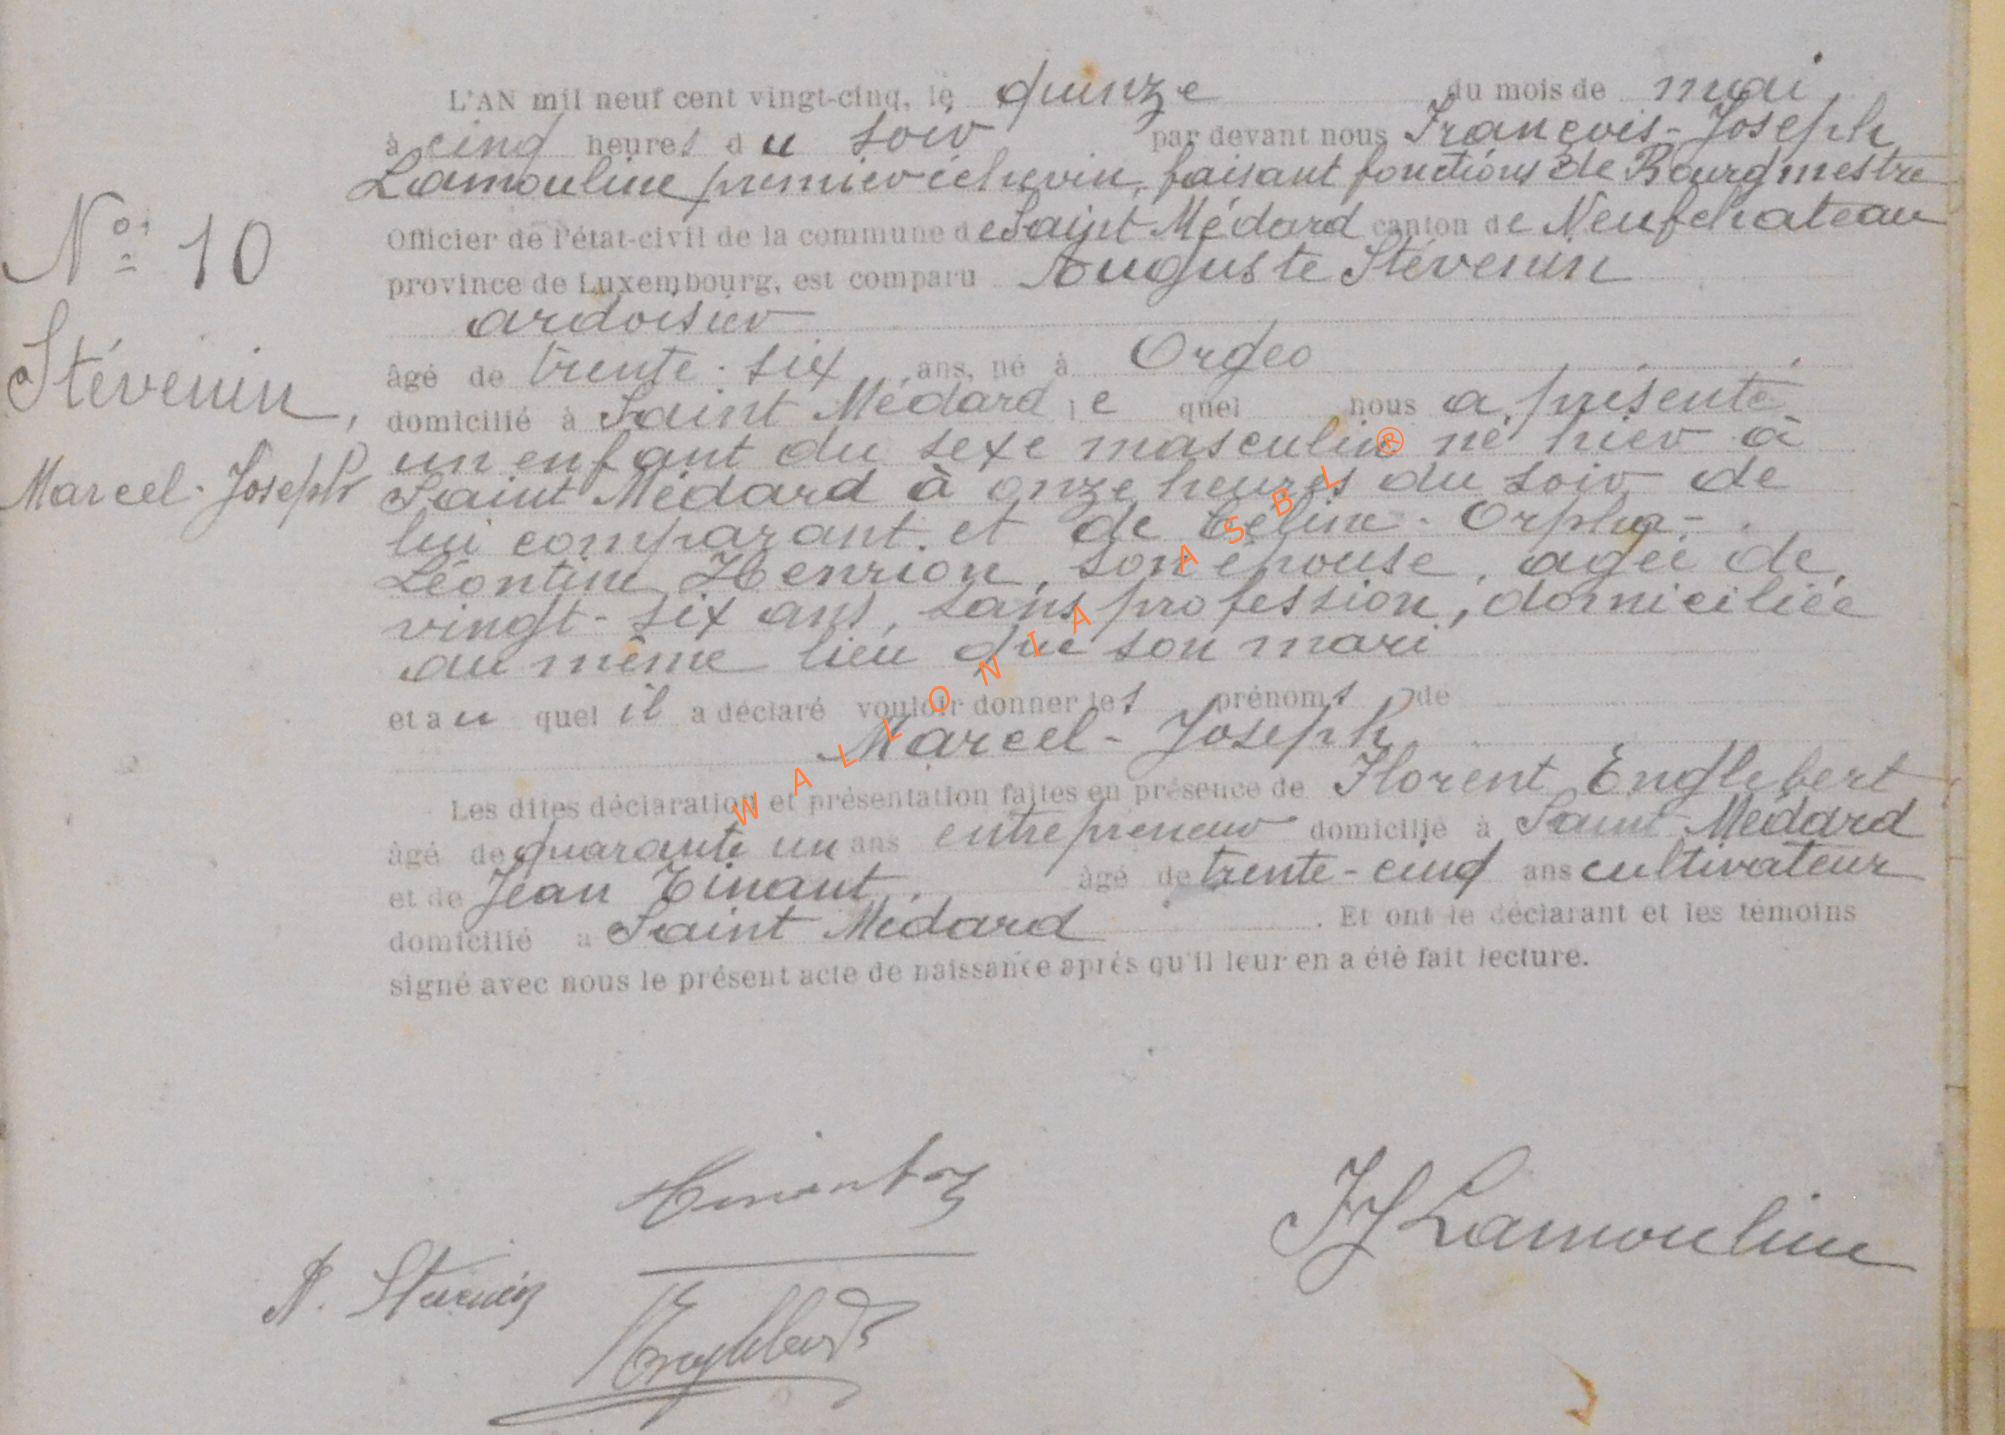 L'AN mil neuf cent vingt-cinq, le quinze du mois de mai
à cinq heures du soir par devant nous François-Joseph
Lamouline premier échevin, faisant fonctions de Bourgmestre
N° 10
Officier de l'état-civil de la commune de Saint Médard canton de Neufchateau
province de Luxembourg, est comparu Auguste Stévenin
ardoisier
Stévenin,
âgé de trente-six ans, né à Orgeo
domicilié à Saint Médard, le quel nous a présenté
un enfant du sexe masculin né hier à
Marcel-Joseph
Saint Médard à onze heures du soir de
lui comparant et de Céline-Orpha-
Léontine Henrion, son épouse, agée de
vingt-six ans, sans profession, domiciliée
au même lieu que son mari
et au quel il a déclaré vouloir donner les prénoms de
Marcel-Joseph
Les dites déclaration et présentation faites en présence de Florent Englebert
âgé de quarante un ans entrepreneur domicilié à Saint Médard
et de Jean Tinant, âgé de trente-cinq ans cultivateur
domicilié à Saint Médard. Et ont le déclarant et les témoins
signé avec nous le présent acte de naissance après qu'il leur en a été fait lecture.
WALLONIA ASBL ®
JJ Lamouline
A. Stévenin
Englebert